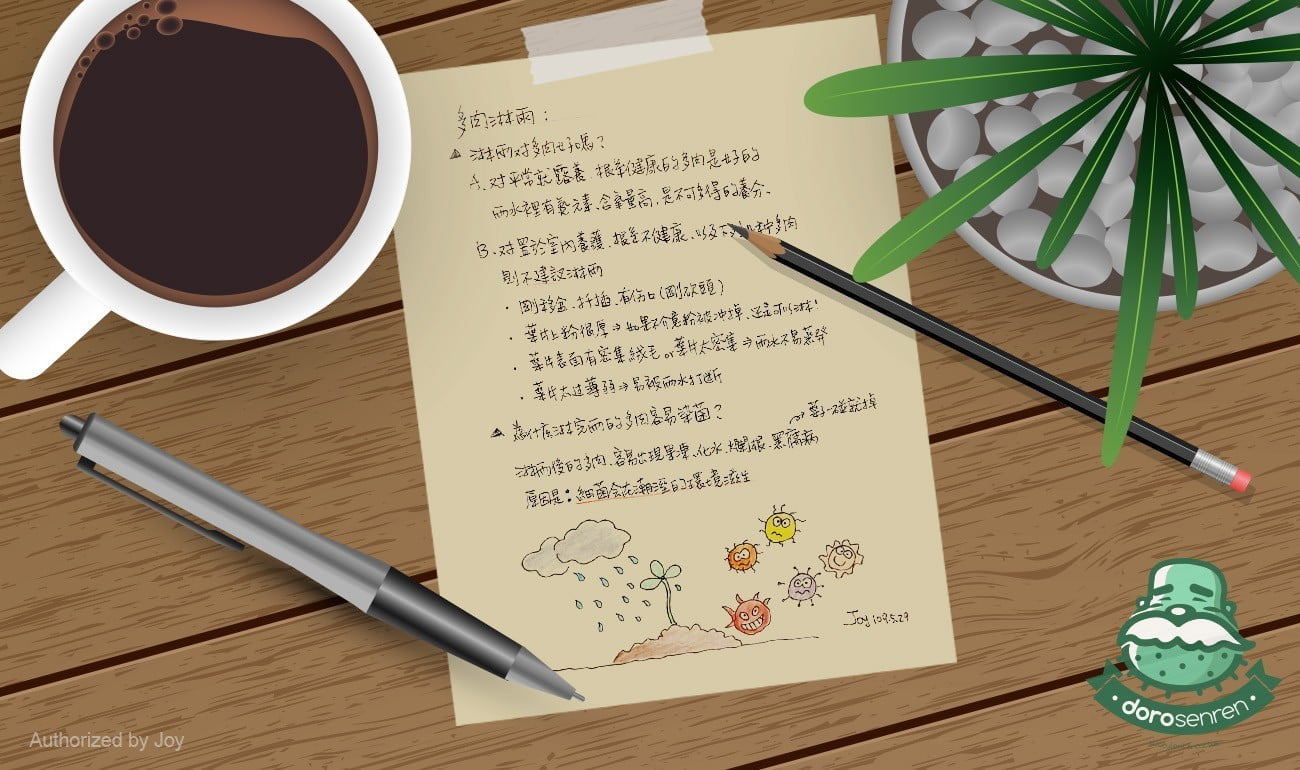 多肉淋雨：
▲ 淋雨对多肉好嗎？
A. 对平常就露養、根系健康的多肉是好的
雨水裡有氮元素、含氧量高，是不可多得的養分。
B. 对置於室內養護、根系不健康、以及下列 多肉
則不建議淋雨
· 剛移盆、扦插、有伤口(剛砍頭)
· 葉片上粉很厚⇒如果不介意粉被冲掉、还是可以淋！
· 葉片表面有密集絨毛or葉片太密集⇒雨水不易蒸発
· 葉片太过薄弱⇒易被雨水打断
▲ 為什麼淋完雨的多肉容易染菌？
葉子一碰就掉
淋雨後的多肉、容易出現果凍、化水、爛根、黑腐病
原因是：細菌会在潮溼的環境滋生
Joy 109.5.29
dorosenren
Authorized by Joy